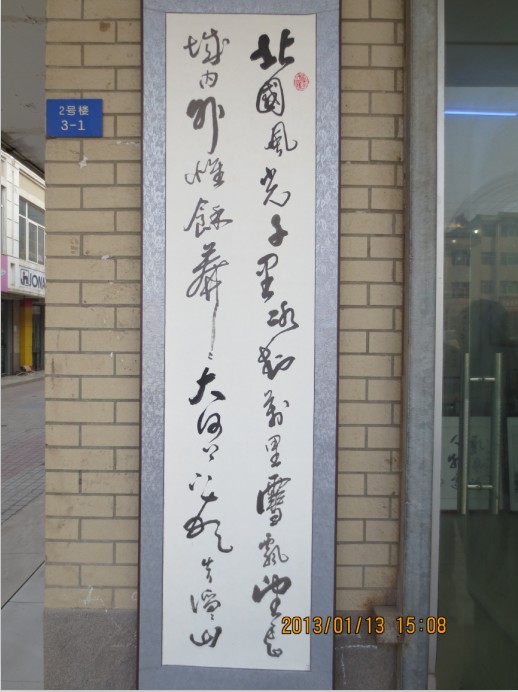 北國風光千里冰封萬里雪飄望長
城内外惟餘莽々大河上下頓失滔々山
2号楼
3-1
JONA
2013/01/13 15:08